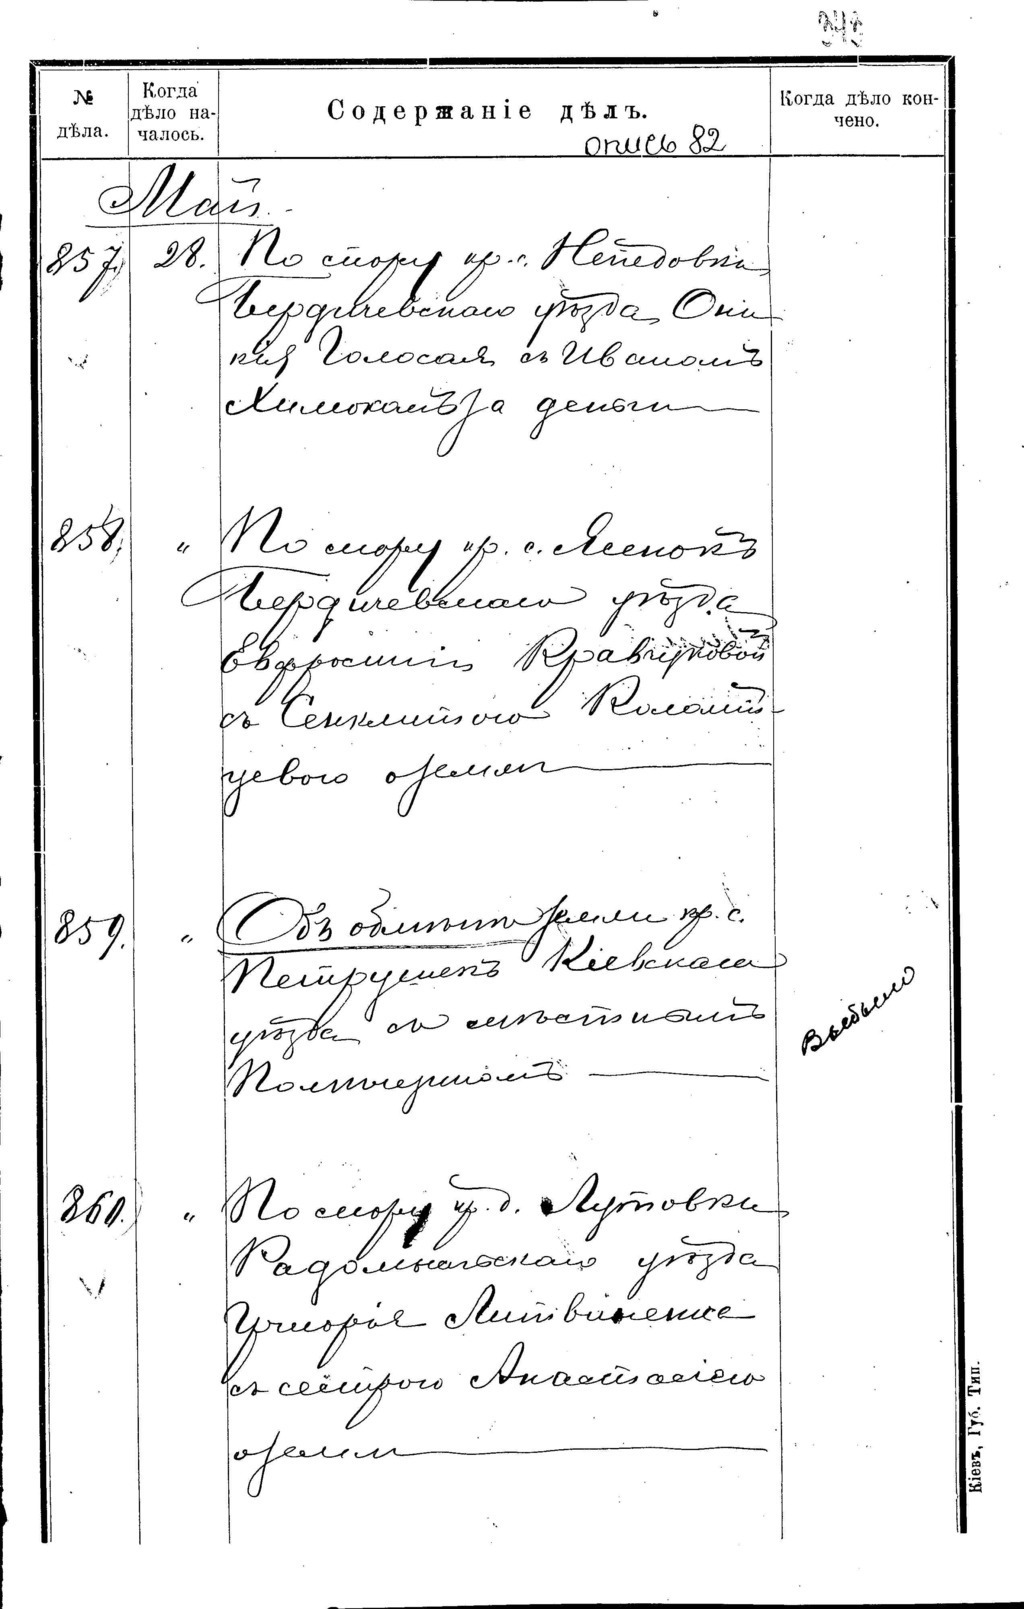 № дѣла.
Когда дѣло на-
чалось.
Содержаніе дѣлъ.
Когда дѣло кон-
чено.
опись 82
Май
857. 28. По спору кр. с. Непедовки
Бердичевскаго уѣзда Они
кія Голосая съ Иваномъ
за деньги
858. " По спору кр. с. Ясенокъ
Бердичевскаго уѣзда
Евфросиніи Кравчуковой
съ Коломій-
цевою о земли
859. " Объ обмѣнѣ земли кр. с.
Петрушекъ Кіевскаго
уѣзда съ мѣстнымъ
860. " По спору кр. д. Лутовки
Радомысльскаго уѣзда
Григорія Литвиненка
съ сестрою Анастасіею
о земли
Выбыло
Кіевъ, Губ. Тип.